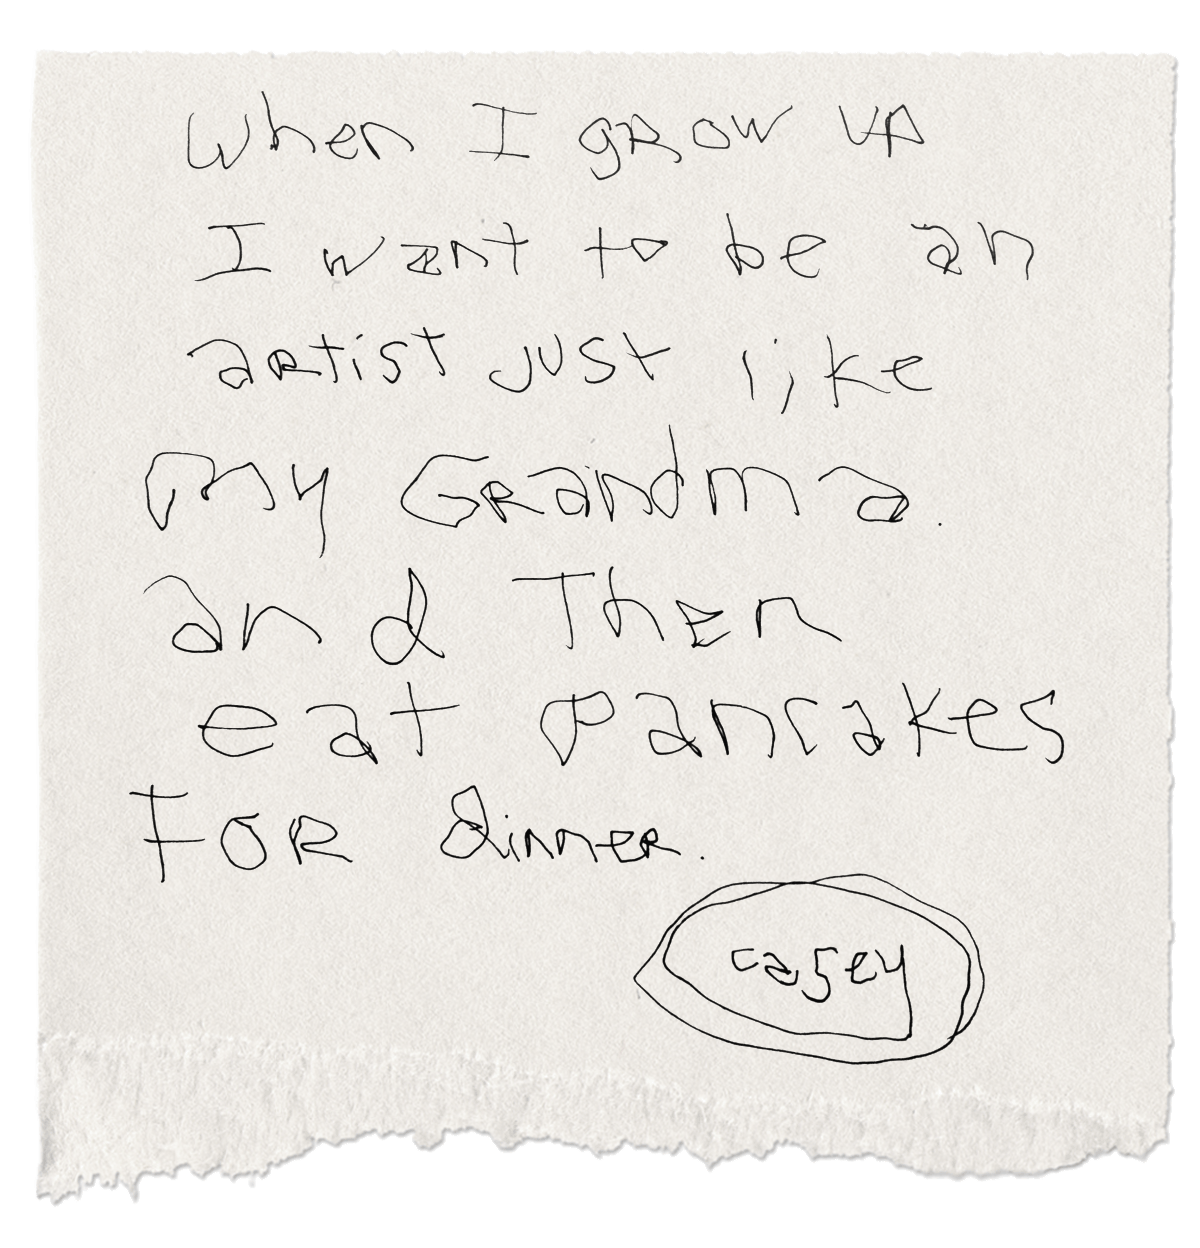 When I grow up
I want to be an
artist just like
my Grandma.
and Then
eat pancakes
For dinner.
casey